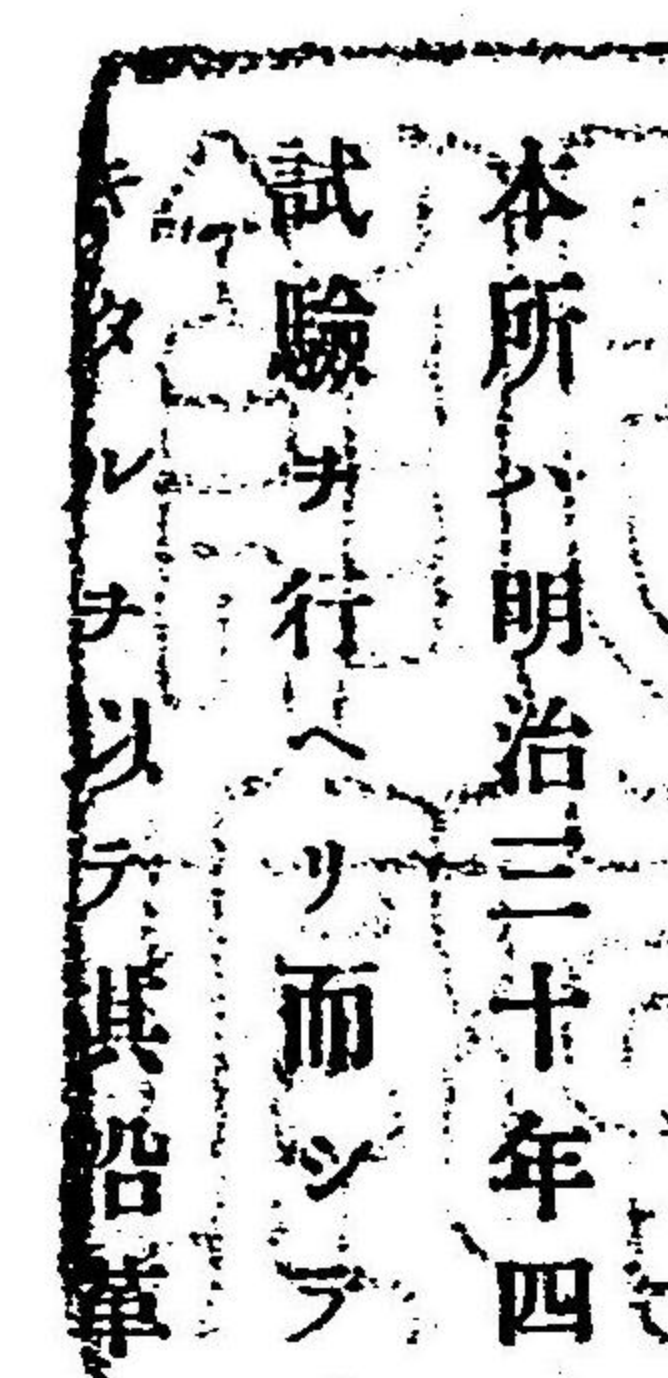 本所ハ明治三十年四
試驗ヲ行ヘリ而シテ
キタルヲ以テ其沿革